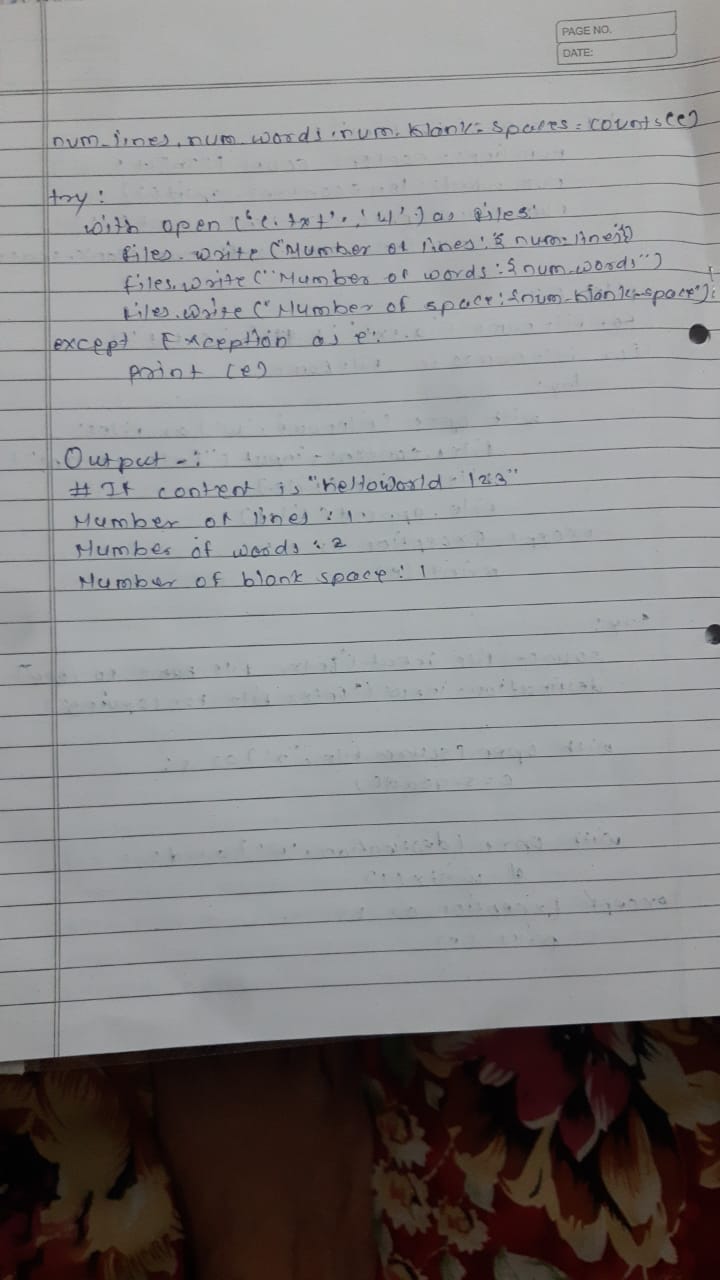 PAGE NO.
DATE:
num_lines, num_words, num_blank_spaces = counts(c)
try:
with open ('c.txt', 'w') as files:
files.write ("Number of lines: { num_lines}")
files.write ("Number of words: { num_words")
files.write (" Number of space: {num_blank_space"):
except Exception as e:
print (e)
Output -:
# If content is "helloworld 123"
Number of lines : 1.
Number of words : 2
Number of blank space: 1